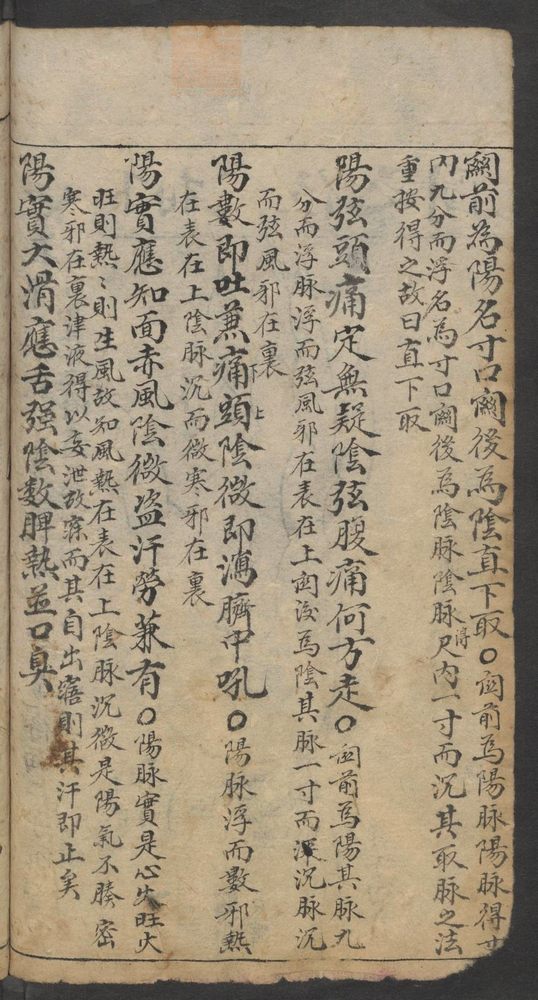 關前為陽名寸口關後為陰直下取〇関前為陽脉陽脉得寸
内九分而浮名為寸口關後為陰脉陰脉得尺内一寸而沉其取脉之法
重按得之故曰直下取
陽弦頭痛定無疑陰弦腹痛何方走〇関前為陽其脉九
分而浮脉浮而弦風邪在表在上関後為陰其脉一寸而深沉脉沉
而弦風邪在裏
陽數即吐蒹痛頭陰微即瀉臍中吼〇陽脉浮而數邪熱
在表在上陰脉沉而微寒邪在裏
陽實應知面赤風陰微盗汗勞蒹有〇陽脉實是心火旺火
旺則熱〻則生風故知風熱在表在上陰脉沉微是陽氣不腠密
寒邪在裏津液得以妄泄故寐而其自出寤則其汗即止矣
陽實大滑應舌强陰數脾熱並口臭